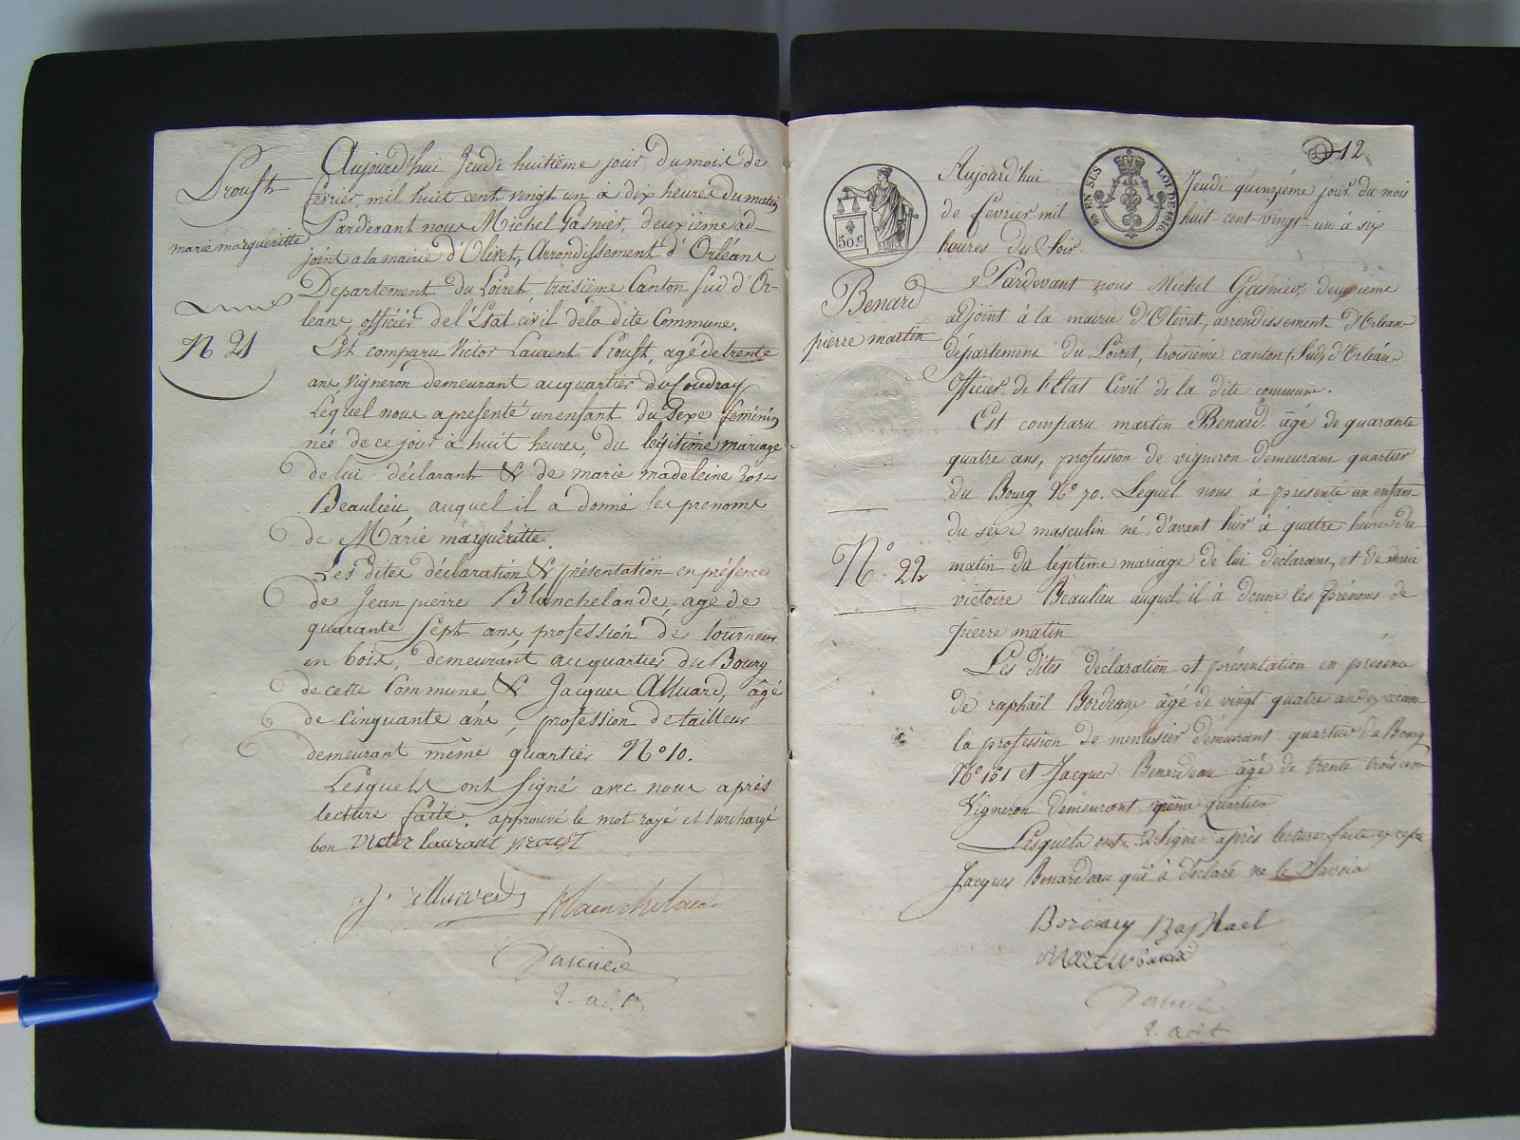 Proust
marie margueritte
N 21
Aujourd'hui Jeudi huitième jour du mois de
fevrier, mil huit cent vingt un à dix heures du matin
Pardevant nous Michel Gasnier, deuxième ad-
joint a la mairie d'Olivet, Arrondissement d'Orléans
Departement du Loiret, troisième Canton Sud d'Or-
leans, officier de l'Etat civil de la dite Commune.
Est comparu Victor Laurent Proust, agé de trente
ans, vigneron demeurant au quartier du Coudray
Lequel nous a presenté un enfant du Sexe feminin
née de ce jour à huit heures, du légitime mariage
de lui déclarant & de marie madeleine
Beaulieu, auquel il a donné les prenoms
de Marie margueritte.
Les dites déclaration & présentation en présence
de Jean pierre Blanchelande, age de
quarante Sept ans, profession de tourneur
en bois, demeurant au quartier du Bourg
de cette Commune & Jacques Alluard, âgé
de cinquante ans, profession de tailleur
demeurant même quartier N° 10.
Lesquels ont Signé avec nous après
lecture faite. approuvé le mot rayé et surchargé
bon victor laurant proust
J. alluard Blanchelande
Gasnier
2. adt.
12
50 c
EN SUS
LOI DE 1816
Benard
pierre martin
N° 22
Aujourd'hui Jeudi quinzième jour du mois
de fevrier mil huit cent vingt un à six
heures du Soir.
Pardevant nous Michel Gasnier, deuxième
adjoint à la mairie d'Olivet, arrondissement d'Orléans
département du Loiret, troisième canton Sud d'Orléans
Officier de l'Etat Civil de la dite commune.
Est comparu martin Benard âgé de quarante
quatre ans, profession de vigneron demeurant quartier
du Bourg N° 70. Lequel nous à présenté un enfant
du sexe masculin né d'avant hier à quatre heures du
matin du légitime mariage de lui déclarant, et de marie
victoire Beaulieu auquel il à donné les prénoms de
pierre matin
Les dites déclaration et présentation en présence
de raphaël Bordeau âgé de vingt quatre ans
la profession de menuisier demeurant quartier du Bourg
N° 101 et Jacques Benardeau âgé de trente trois ans
Vigneron demeurant même quartier
Lesquels ont Signé après lecture faite excepté
Jacques Benardeau qui à déclaré ne le Savoir
Raphael
Gasnier
2. adt